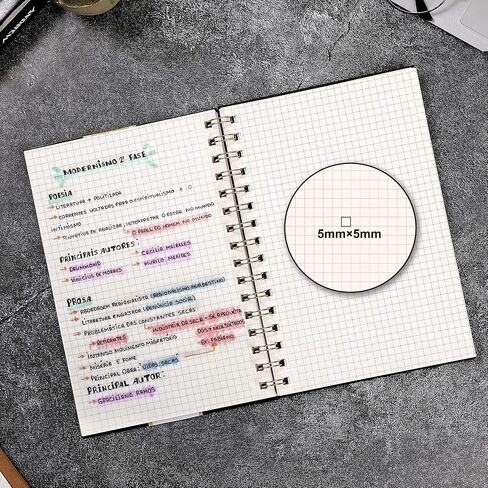 MODERNISMO 2ª FASE
POESIA
LITERATURA + POLITIZADA
CORRENTES VOLTADAS PARA O ESPIRITUALISMO E O
INTIMISMO
TENTATIVA DE ANALISAR, INTERPRETAR O ESTAR NO MUNDO
O PAPEL DO HOMEM NO MUNDO
PRINCIPAIS AUTORES:
DRUMMOND
CECÍLIA MEIRELES
VINICIUS DE MORAES
MURILO MENDES
PROSA
ABORDAGEM REGIONALISTA (REGIONALISMO NORDESTINO)
LITERATURA ENGAJADA (DENÚNCIA SOCIAL)
PROBLEMÁTICA DAS CONSTANTES SECAS
RETIRANTES
INDÚSTRIA DA SECA - SE APROVEITA
DOS + NECESSITADOS
INTENSO MOVIMENTO MIGRATÓRIO
MISÉRIA E FOME
PRINCIPAL OBRA: VIDAS SECAS
PRINCIPAL AUTOR:
GRACILIANO RAMOS
5mm×5mm